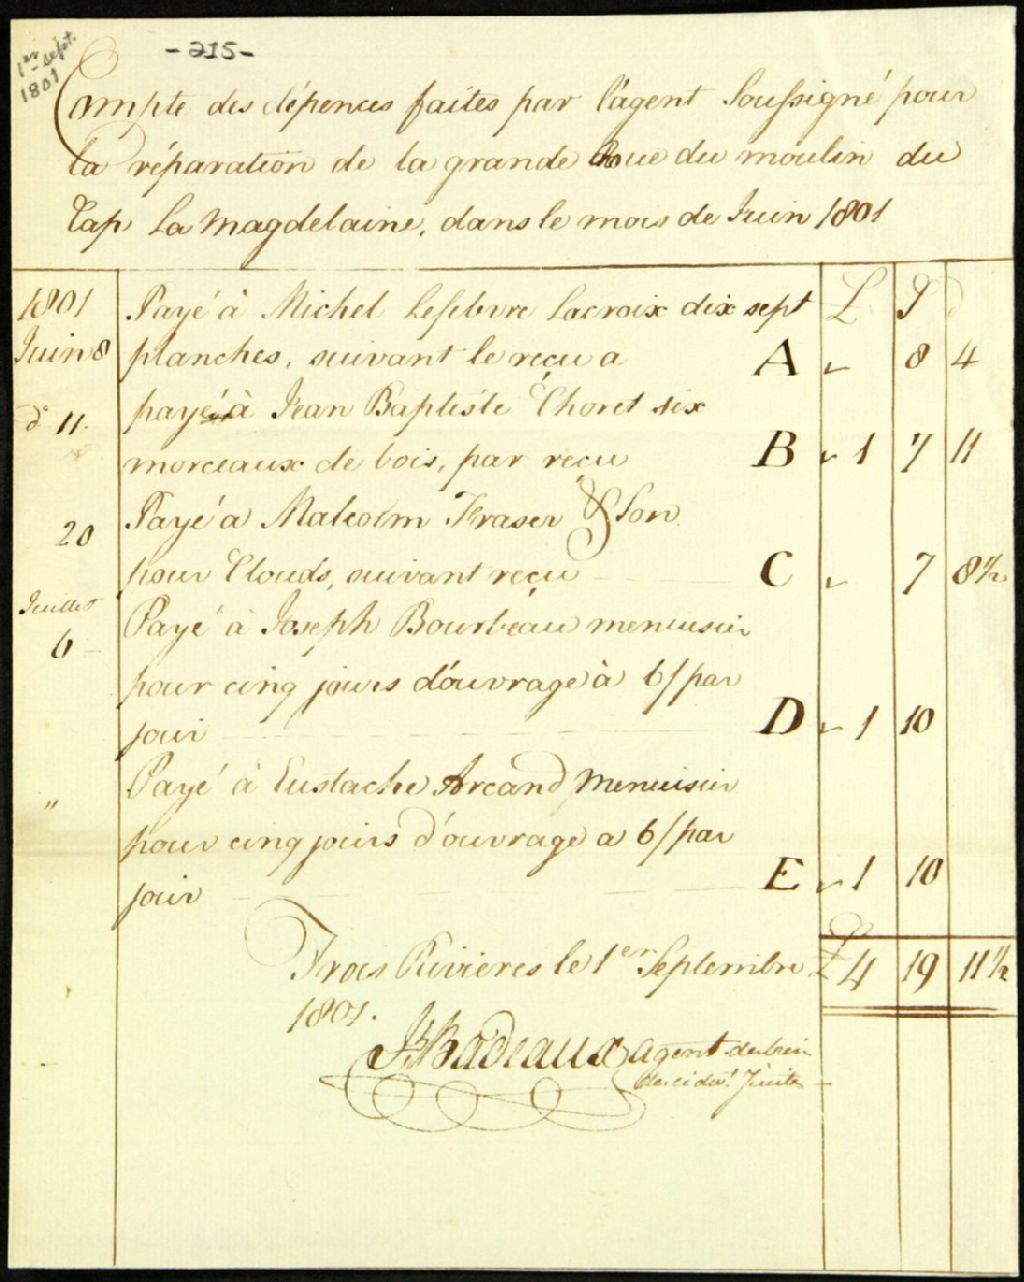 - 215 -
1er sept.
1801
Compte des dépences faites par l'agent Soussigné pour
la réparation de la grande Roue du moulin du
Cap La Magdelaine, dans le mois de Juin 1801
1801 Payé à Michel Lefebvre Lacroix dix sept £ S d
Juin 8 planches, suivant le reçu a A 8 4
d° 11. payé à Jean Baptiste Choret six
morceaux de bois, par reçu B 1 7 11
20 Payé a Malcolm Fraser & Son
pour Clouds, suivant reçu C 7 8½
Juillet
6 Payé à Joseph Bourbeau menuisier
pour cinq jours d'ouvrage à 6/ par
jour D 1 10
" Payé à Eustache Arcand Menuisier
pour cinq jours d'ouvrage a 6/ par
jour E 1 10
Trois Rivieres le 1er Septembre £ 4 19 11½
1801.
JBt Badeaux agent des biens
des cidevt Jésuites